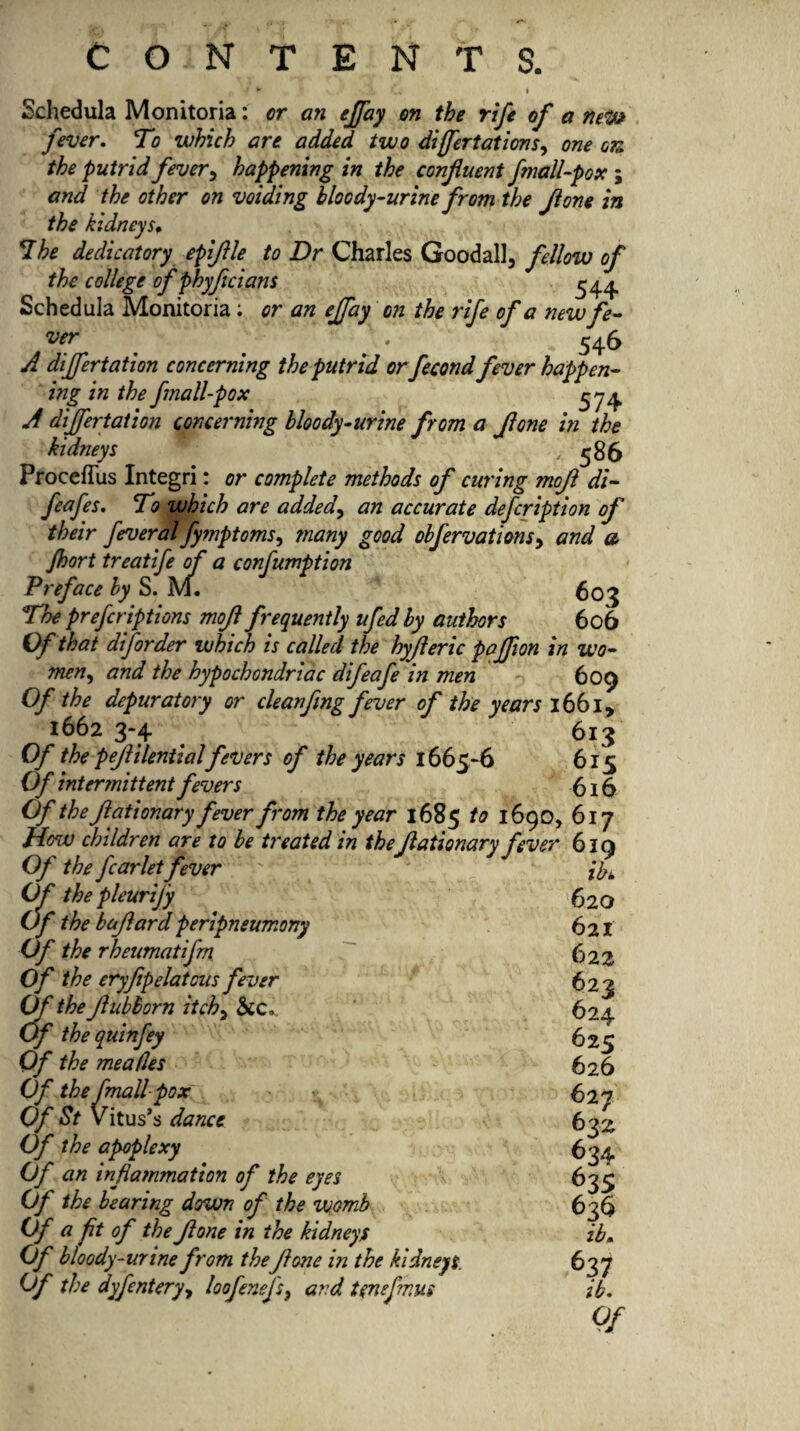 CONTENTS.
Schedula Monitoria: or an eſſay on the riſe of a new
fever. To which are added two diſſertations, one on
the putrid fever, happening in the confluent ſmall-pox;
and the other on voiding bloody-urine from the ſtone in
the kidneys.
The dedicatory epiſtle to Dr Charles Goodall, fellow of
the college of phyſicians 544
Schedula Monitoria: or an eſſay on the riſe of a new fe-
ver 546
A diſſertation concerning the putrid or ſecond fever happen-
ing in the ſmall-pox 574
A diſſertation concerning bloody-urine from a ſtone in the
kidneys 586
Proceſſus Integri: or complete methods of curing moſt di-
ſeaſes. To which are added, an accurate deſcription of
their ſeveral ſymptoms, many good obſervations, and a
ſhort treatiſe of a conſumption
Preface by S. M. 603
The preſcriptions moſt frequently uſed by authors 606
Of that diſorder which is called the hyſteric paſſion in wo-
men, and the hypochondriac diſeaſe in men 609
Of the depuratory or cleanſing fever of the years 1661,
1662 3-4 613
Of the peſtilential fevers of the years 1665-6 615
Of intermittent fevers 616
Of the ſtationary fever from the year 1685 to 1690, 617
How children are to be treated in the ſtationary fever 619
Of the ſcarlet fever ib.
Of the pleuriſy 620
Of the baſtard peripneumony 621
Of the rheumatiſm 622
Of the eryſipelatous fever 623
Of the ſtubborn itch, &c. 624
Of the quinſey 625
Of the meaſles 626
Of the ſmall-pox 627
Of St Vitus's dance 632
Of the apoplexy 634
Of an inflammation of the eyes 635
Of the bearing down of the womb 636
Of a fit of the ſtone in the kidneys ib.
Of bloody-urine from the ſtone in the kidneys. 637
Of the dyſentery, looſeneſs, and teneſmus ib.
Of